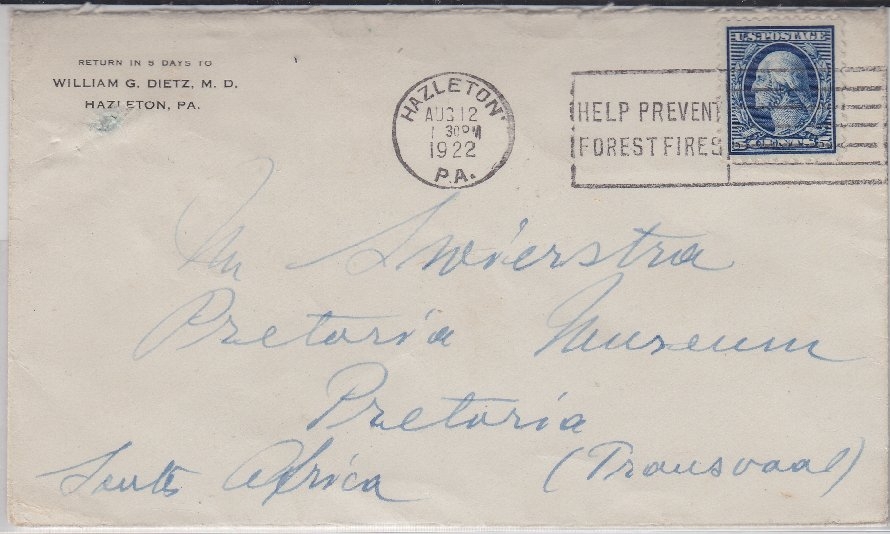 RETURN IN 5 DAYS TO
WILLIAM G. DIETZ, M. D.
HAZLETON, PA.
HAZLETON
AUG 12
1 30 PM
1922
PA.
HELP PREVENT
FOREST FIRES
U.S. POSTAGE
Mr Swierstra
Pretoria Museum
Pretoria
(Transvaal)
South Africa